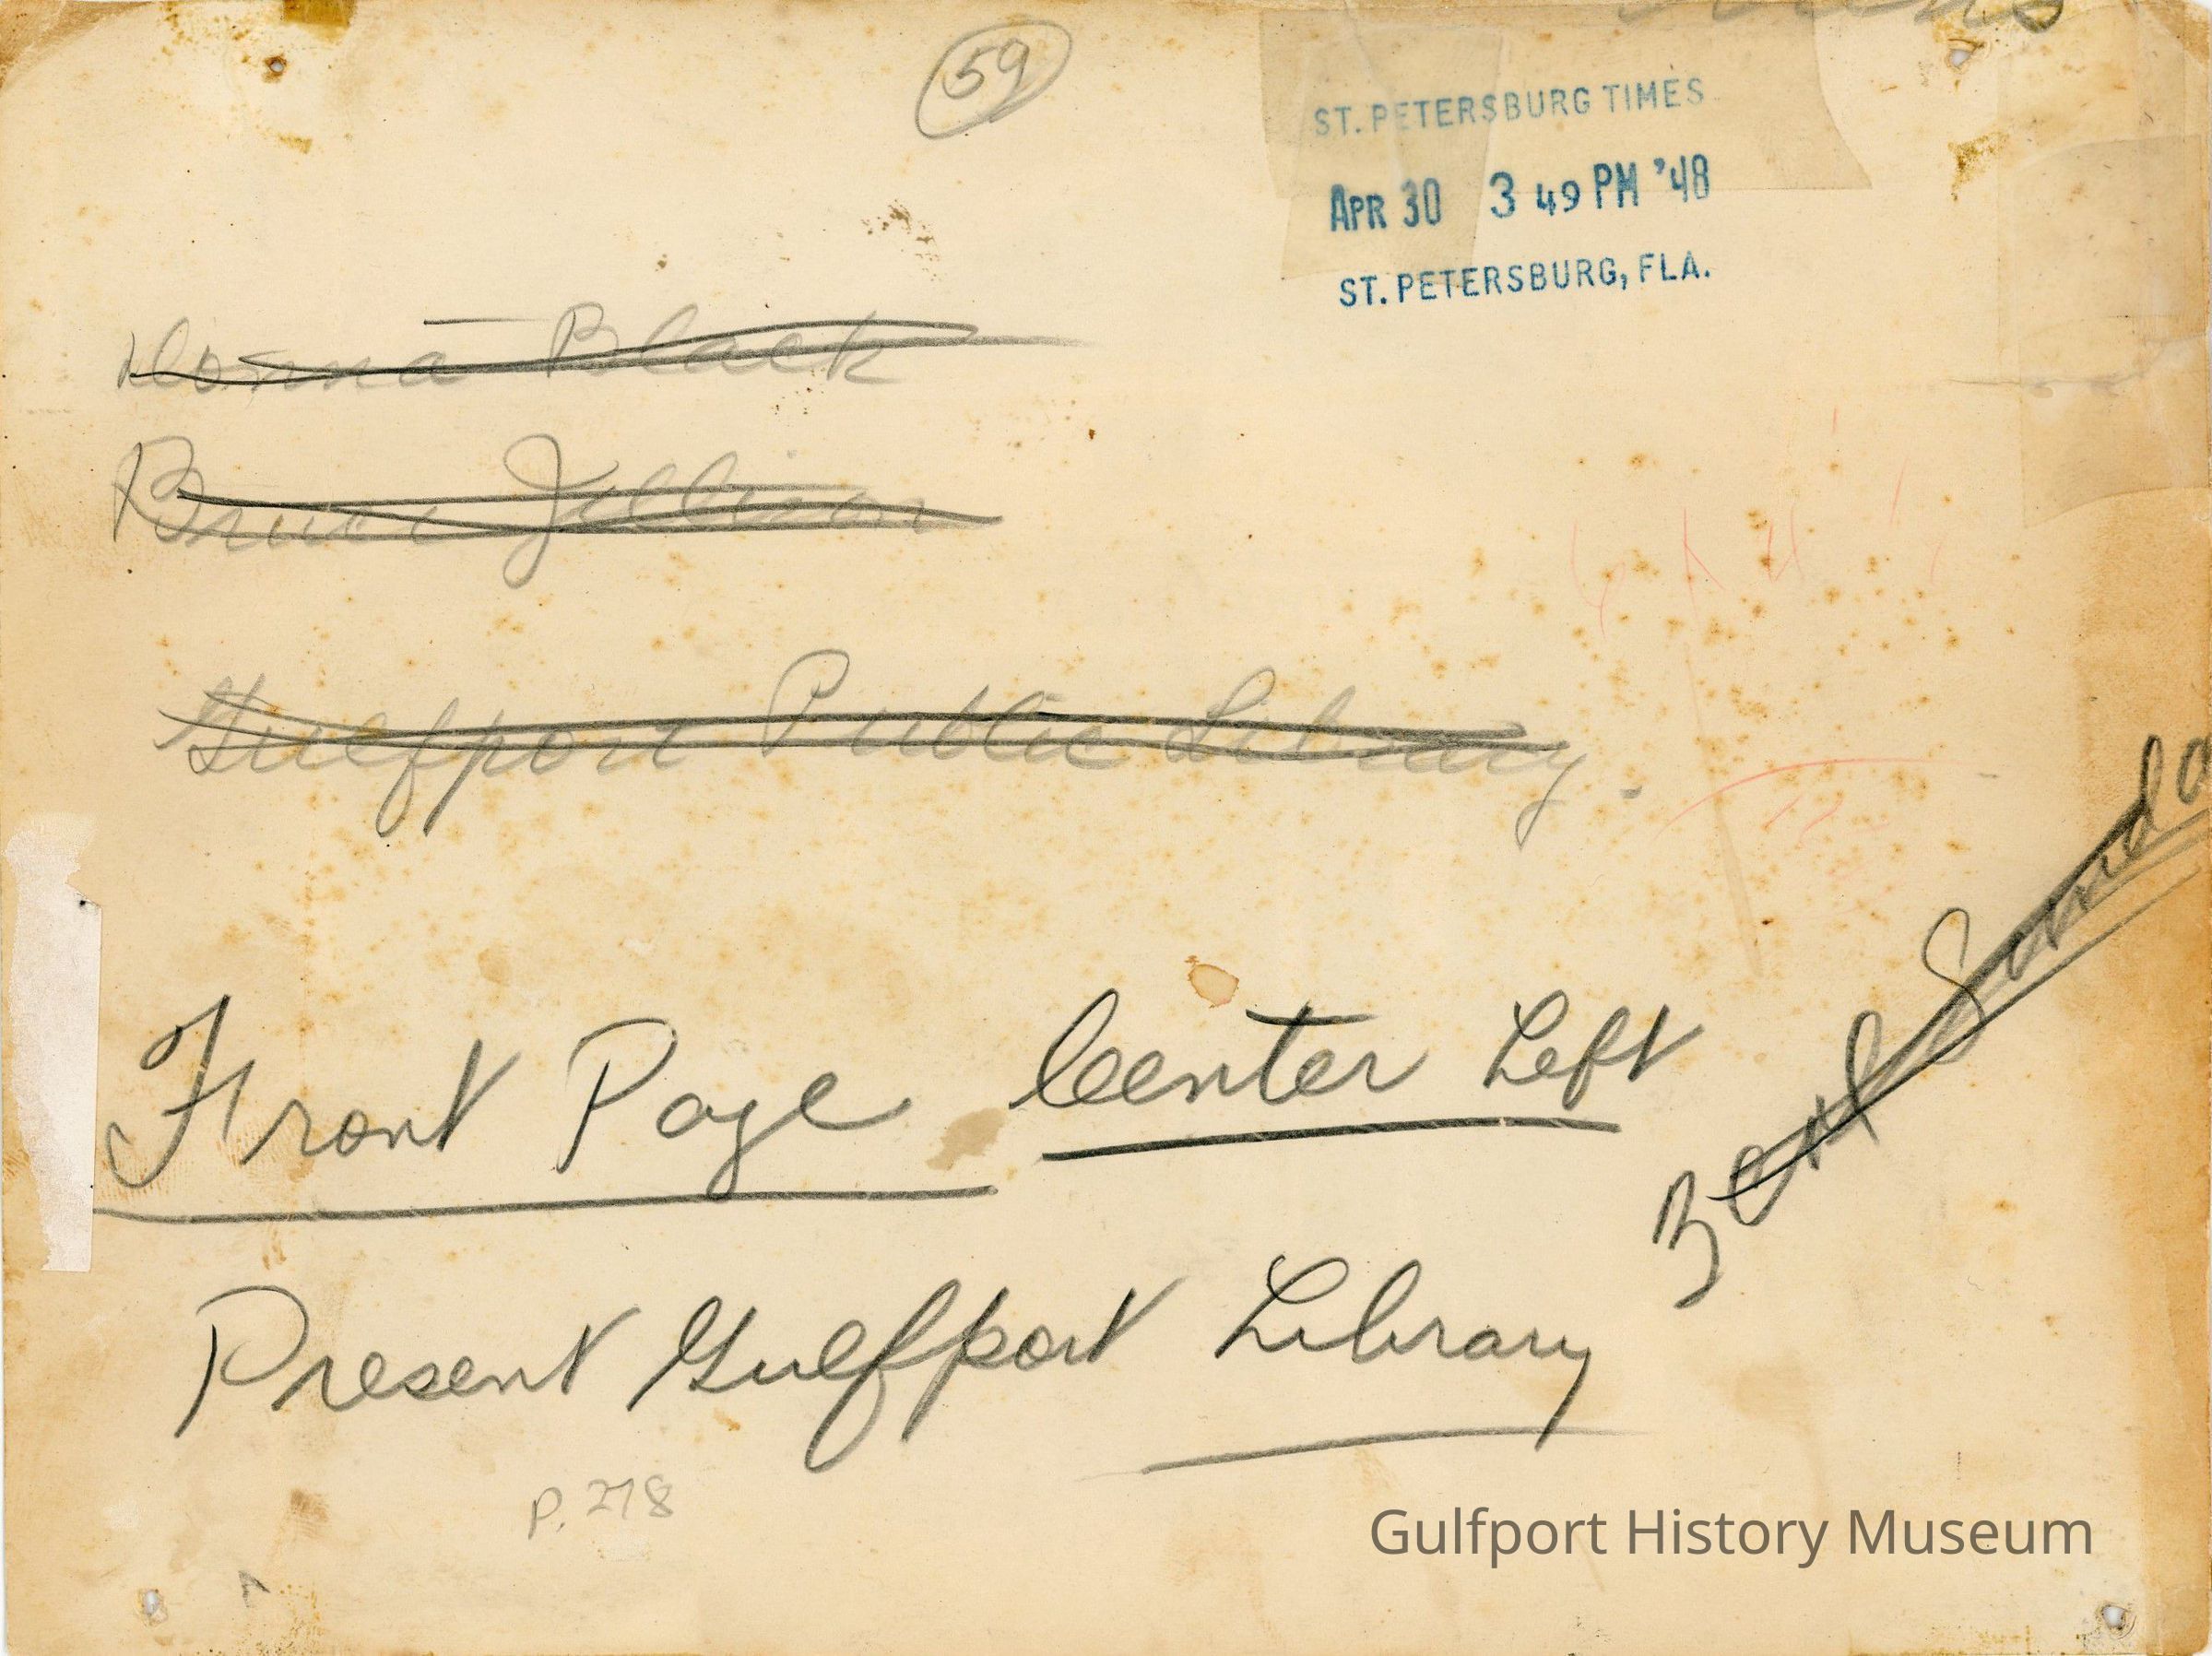 59
ST. PETERSBURG TIMES
APR 30 3 49 PM '48
ST. PETERSBURG, FLA.
Donna Black
Bruce Jillison
Gulfport Public Library.
Front Page Center Left
Present Gulfport Library
P. 278
Gulfport History Museum